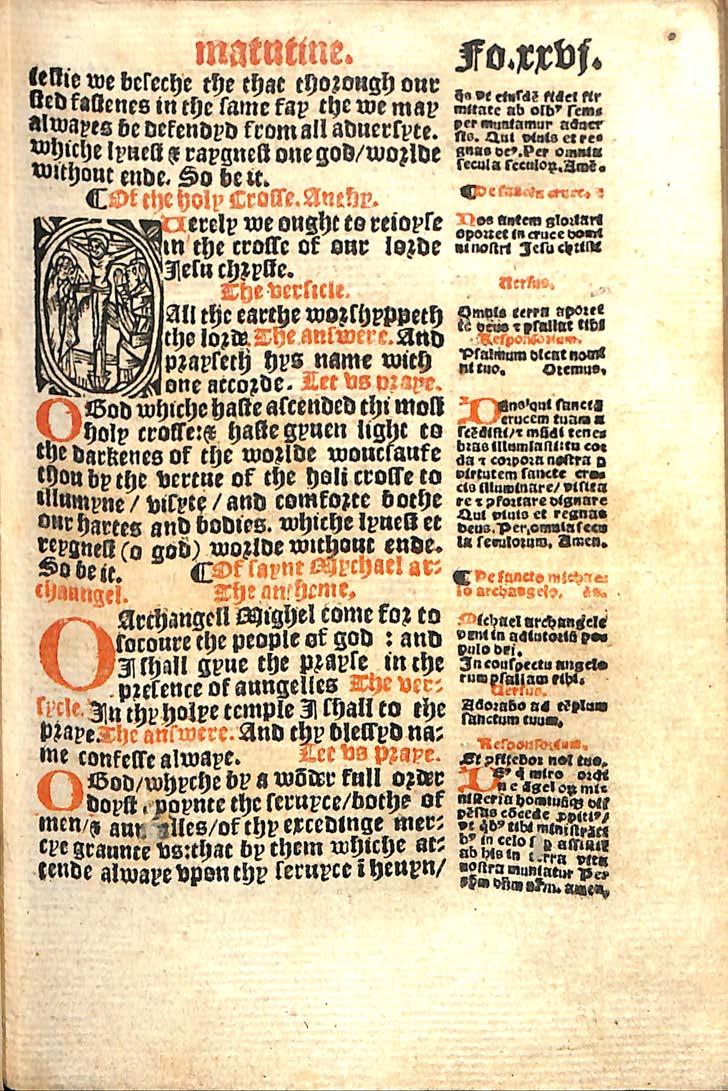 matutine.
Fo.xxvj.
iestie we beseche the that thorough our
sted fastenes in the same fay the we may
alwayes be defendyd from all aduersyte.
whiche lyuest & raygnest one god/worlde
without ende. So be it.
¶Of the holy Crosse. Anthy.
Uerely we ought to reioyse
in the crosse of our lorde
Jesu chryste.
The versicle.
All the earthe worshyppeth
the lorde. The answere. And
prayseth hys name with
one accorde. Let vs praye.
O God whiche haste ascended thi most
holy crosse:& haste gyuen light to
the darkenes of the worlde woutsaufe
thou by the vertue of the holi crosse to
illumyne / visyte / and comforte bothe
our hartes and bodies. whiche lyuest et
reygnest (o god) worlde without ende.
So be it. ¶Of sayne Mychael ar:
chaungel. The antheme.
O Archangell Mighel come for to
socoure the people of god : and
J shall gyue the prayse in the
presence of aungelles The ver:
sycle. Jn thy holye temple J shall to the
praye. The answere. And thy blessyd na:
me confesse alwaye. Let vs praye.
O God/whyche by a wōder full order
doyst poynte the seruyce/bothe of
men/& aun lles/of thy excedinge mer:
cye graunce vs:that by them whiche at:
tende alwaye vpon thy seruyce ī heuyn/
q̄s vt eiusdē fidei fir
mitate ab oībꝰ sems
per muniamur aduer
sis. Qui viuis et reg
gnas deꝰ. Per omnia
secula seculoꝝ. Amē.
¶De sancta cruce.
Nos autem gloriari
oportet in cruce domi
ni nostri Jesu christi
Uersus.
Omnis terra adoret
te deus ⁊ psallat tibi
Responsorium.
Psalmum dicat nomi
ni tuo. Oremus.
Deus qui sanctā
crucem tuam a
scēdisti/⁊ mūdi tenes
bras illuminasti tu cor
da ⁊ corpora nostra p
virtutem sancte cru
cis illuminare/ visita
re ⁊ ꝯfortare dignare
Qui viuis et regnas
deus. Per omnia secu
la seculorum. Amen.
¶De sancto michae
lo archangelo.
Michael archangele
veni in adiutoriū po
pulo dei.
In conspectu angelo
rum psallam tibi.
Uersus.
Adorabo ad tēplum
sanctum tuum.
Responsorium.
Et ꝯfitebor noī tuo.
Deꝰ q̄ miro ordi
ne āgeloꝝ mi
nisteria hominūqꝫ dis
pēsas cōcede ꝓpitiꝰ/
vt q̄bꝰ tibi ministrāti
bꝰ in celo assistit
ab his in terra vita
nostra muniatur Per
amen.